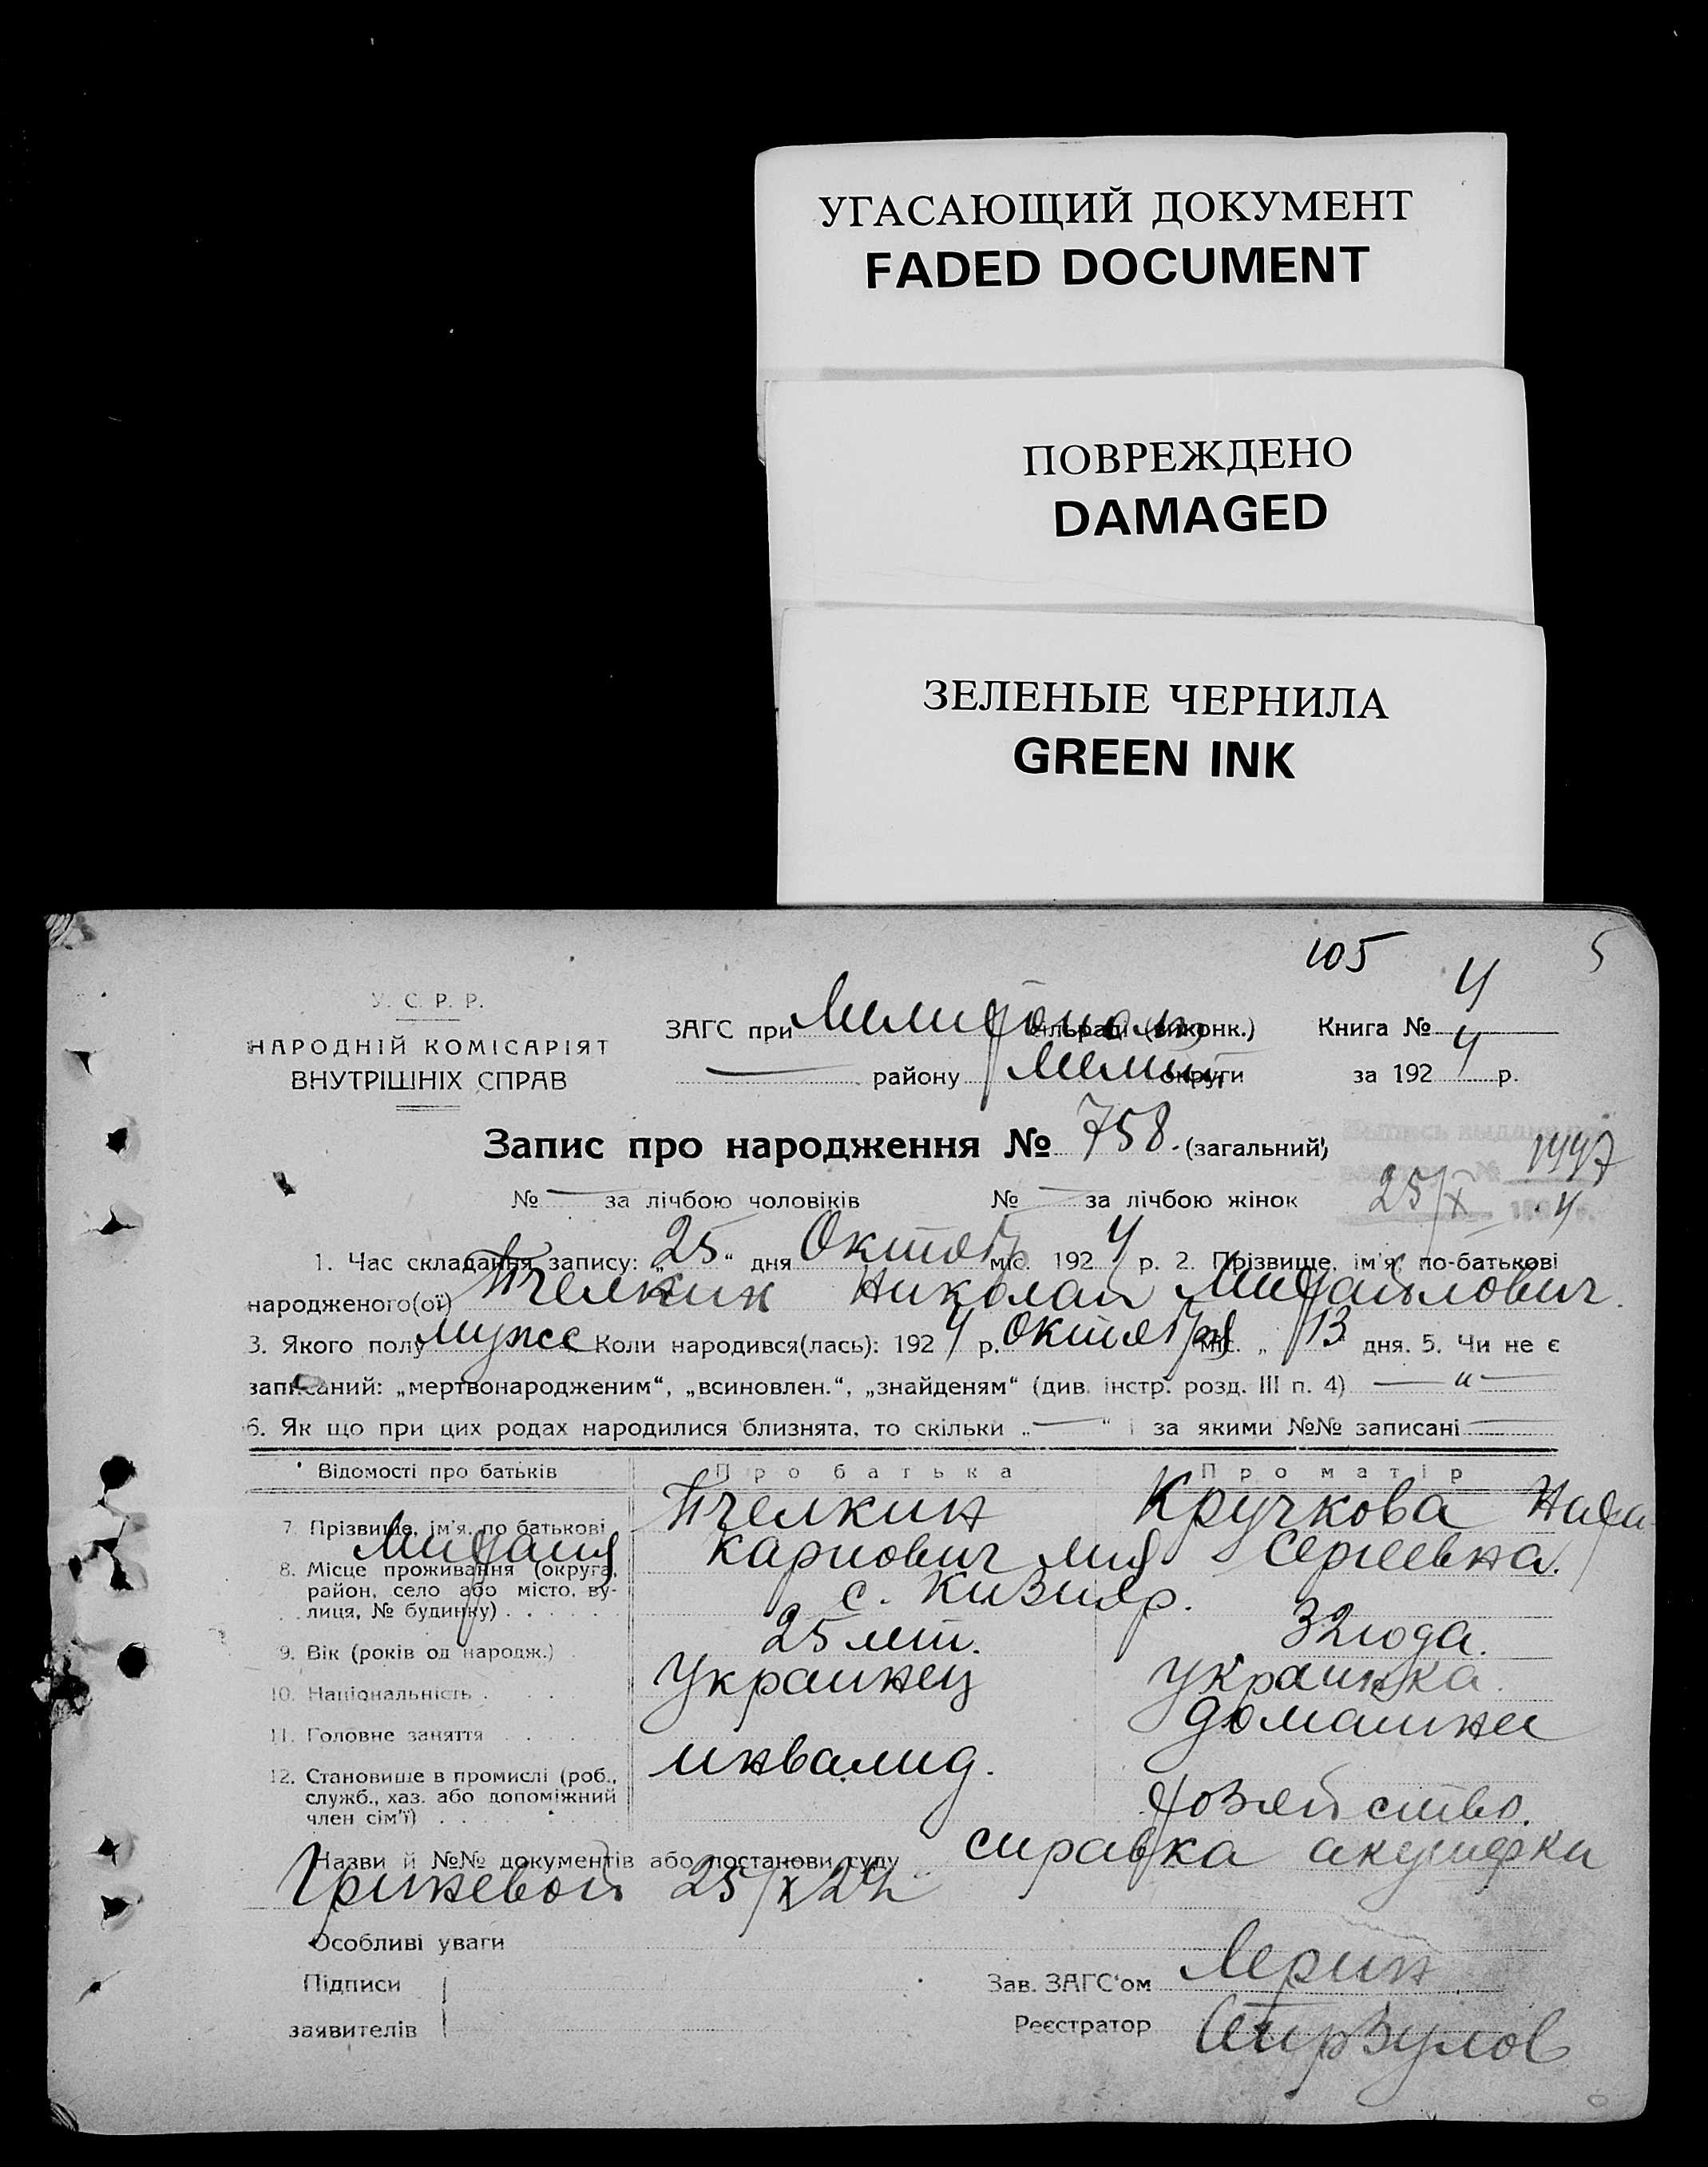 УГАСАЮЩИЙ ДОКУМЕНТ
FADED DOCUMENT
ПОВРЕЖДЕНО
DAMAGED
ЗЕЛЕНЫЕ ЧЕРНИЛА
GREEN INK
105 5
У. С. Р. Р.
НАРОДНІЙ КОМІСАРІЯТ
ВНУТРІШНІХ СПРАВ
ЗАГС при сільраді (виконк.) Книга № 4
району Мелит округи за 1924 р.
Запис про народження № 758. (загальний)
№ — за лічбою чоловіків № — за лічбою жінок
1447
25/X 4
1. Час складання запису: „25“ дня Октяб міс. 1924 р. 2. Прізвище, ім'я, по-батькові
народженого(ої) Пчелкин Николай Михайлович.
3. Якого полу мужс Коли народився(лась): 1924 р. октября міс. „13 дня. 5. Чи не є
записаний: „мертвонародженим“, „всиновлен.“, „знайденям“ (див. інстр. розд. III п. 4) — „ —
6. Як що при цих родах народилися близнята, то скільки „—“ і за якими №№ записані —
Відомості про батьків Про батька Про матір
7. Прізвище, ім'я, по батькові Пчелкин Кручкова
Михаил Карпович Сергеевна.
8. Місце проживання (округа, район, село або місто, вулиця, № будинку) с. Кизияр.
9. Вік (років од народж.) 25 лет. 32 года.
10. Національність Украинец украинка.
11. Головне заняття инвалид. домашнее
12. Становище в промислі (роб., служб., хаз. або допоміжний член сім'ї) хозяйство.
Назви й №№ документів або постанови суду справка акушерки
Гриневой 25/X 24
Особливі уваги
Підписи
заявителів
Зав. ЗАГС'ом
Реєстратор